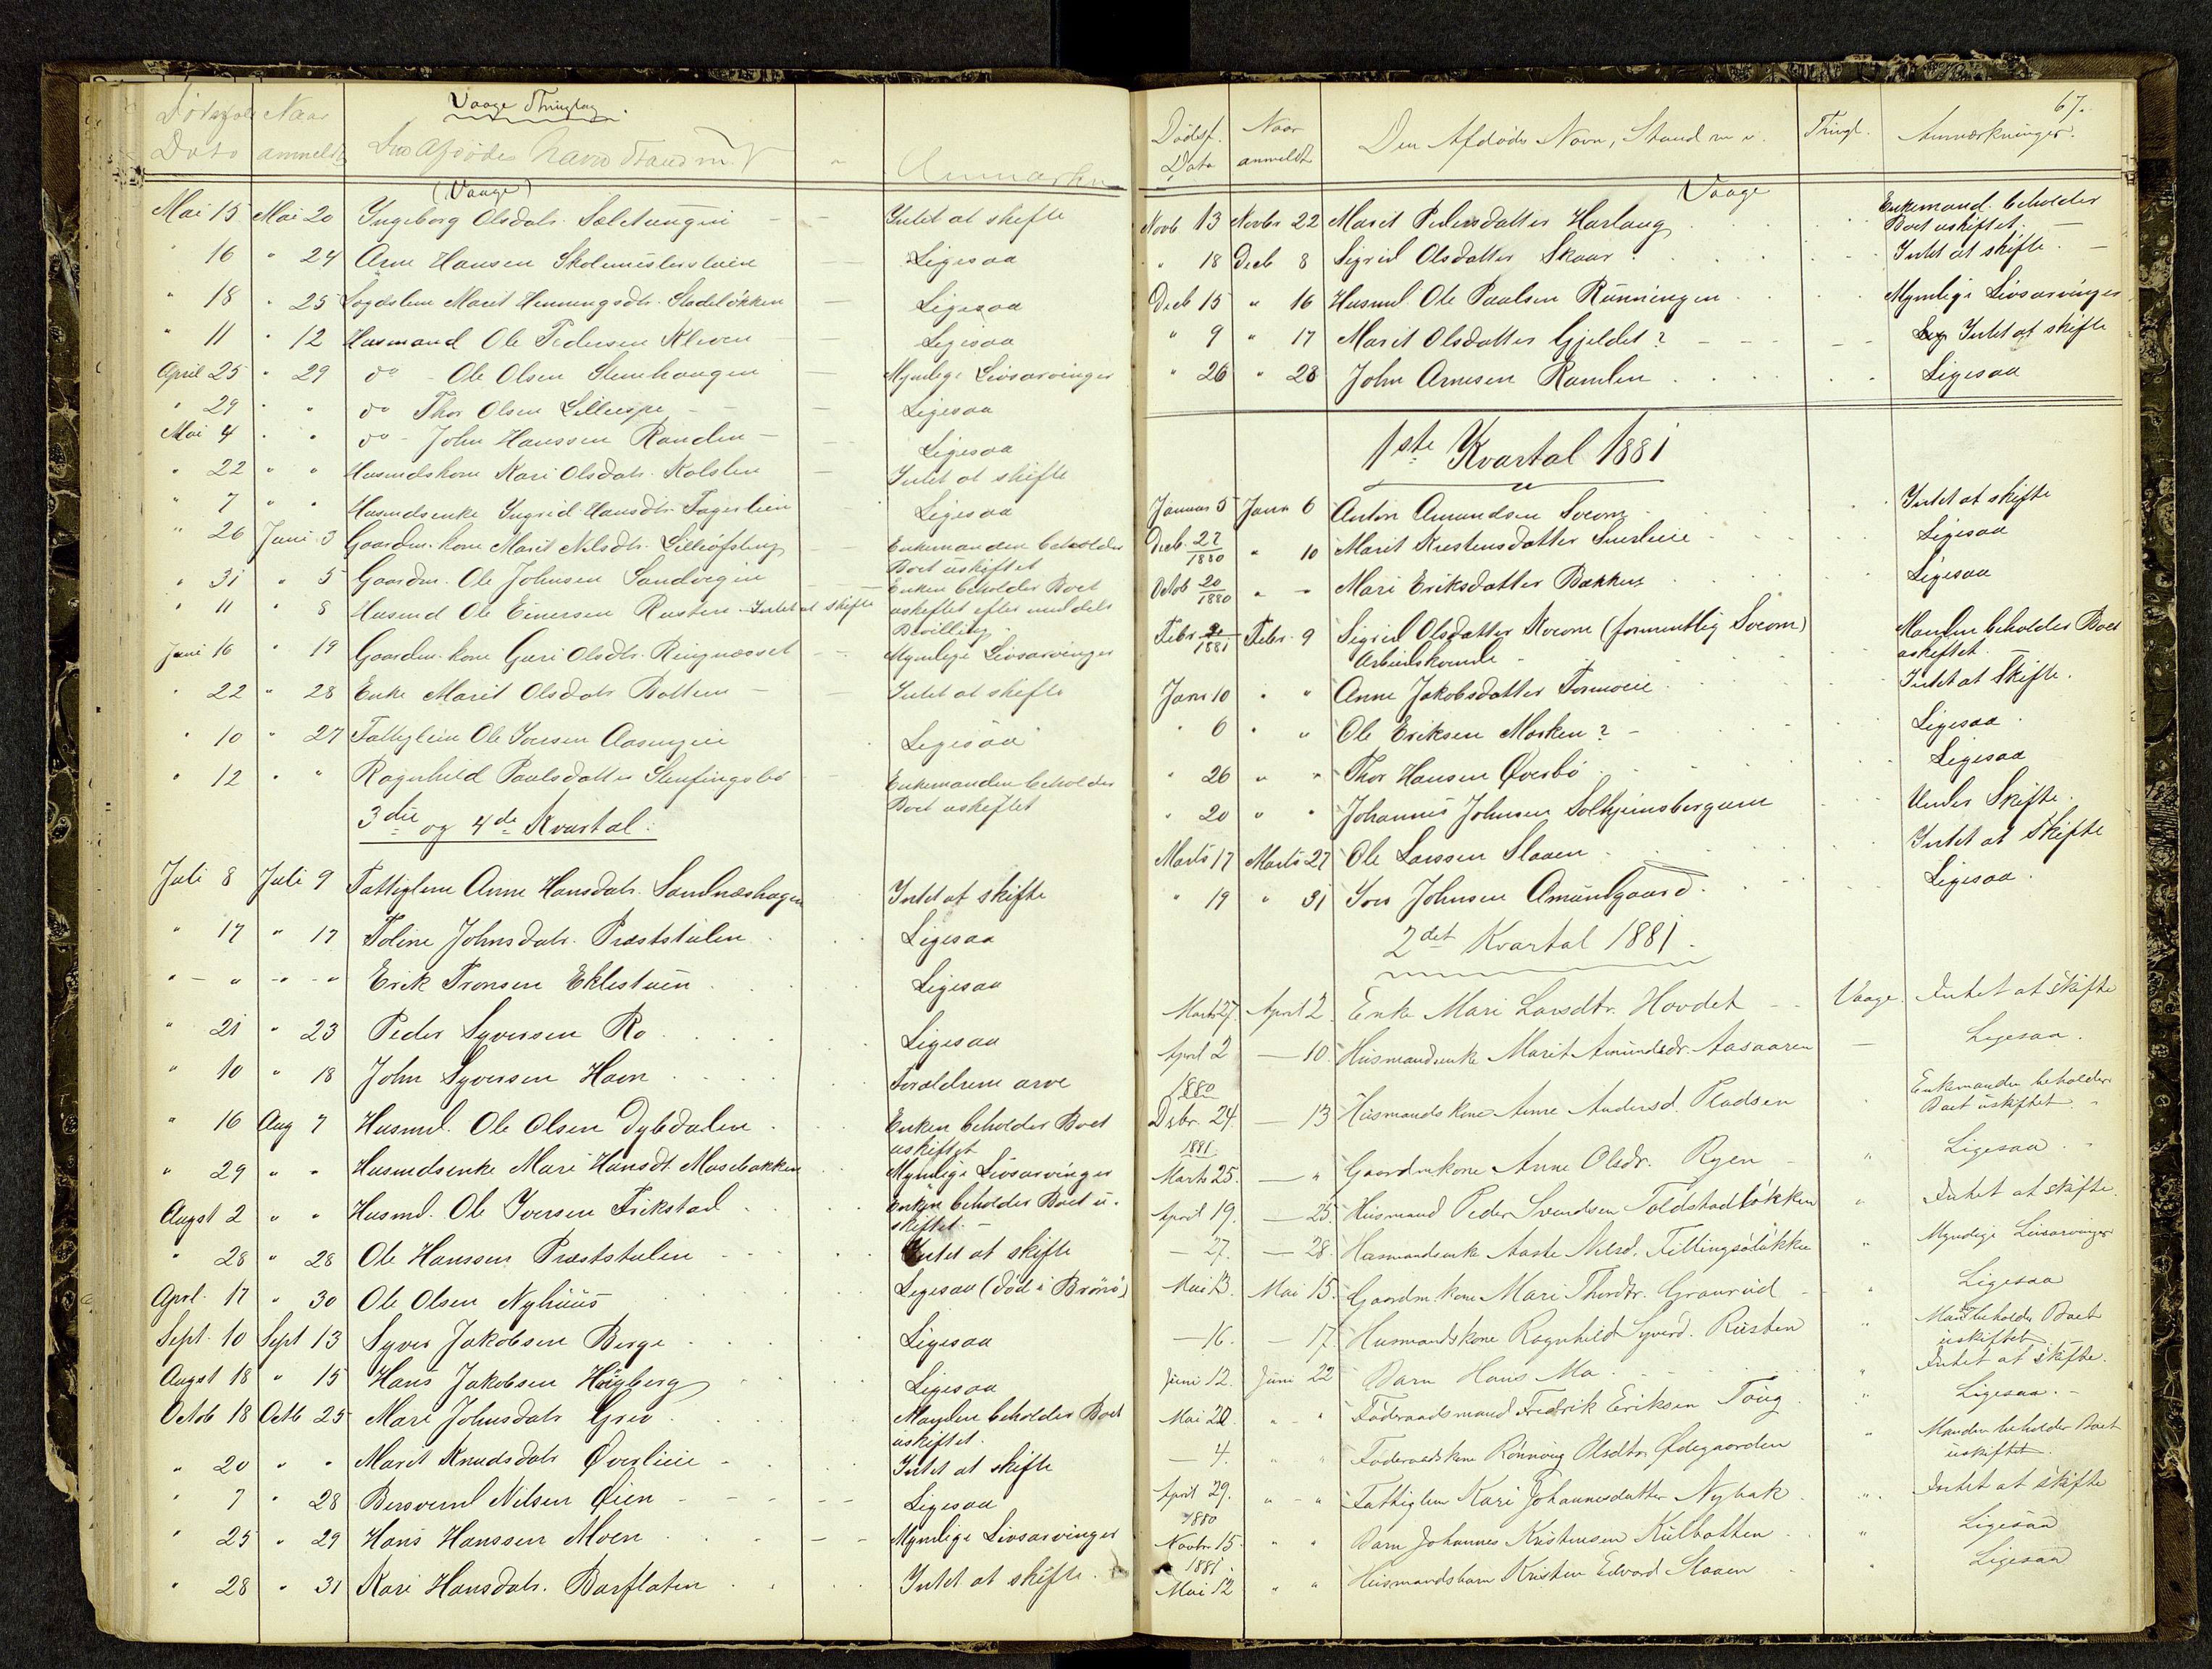 Vaage Thinglag.
Dødsfald Dato Naar anmeldt Den Afdødes Navn Stand m. v. Anmærkn
(Vaage)
Mai 15 Mai 20 Ingeborg Olsdatr. Sæletungen - - Intet at skifte
" 16 " 24 Arne Hansen Skolemesterstuen - Ligesaa
" 18 " 25 Lægdslem Marit Henningsdtr. Sladeløkken - Ligesaa
" 11 " 12 Husmand Ole Pedersen Kleven - Ligesaa
April 25 " 29 do - Ole Olsen Stenehaugen - Myndige Livsarvinger
" 29 " " do Thor Olsen Lillerspe - Ligesaa
Mai 4 " " do - John Hanssen Randen - Ligesaa
" 22 " " Husmdskone Kari Olsdatr. Kolslen - Intet at skifte
" 7 " " Husmdsenke Ingrid Hansdtr. Fagerlien Ligesaa
" 26 Juni 3 Gaardm. kone Marit Nilsdtr. Enkemanden beholder
Boet uskiftet
" 31 " 5 Gaardm. Ole Johnsen Sandvegen Enken beholder Boet
" 11 " 8 Husmd Ole Einersen Rusten - Intet at skifte uskiftet efter meddelt
Bevilling.
Juni 16 " 19 Gaardm. kone Guri Olsdtr. Ringnæsset Myndige Livsarvinger
" 22 " 28 Enke Marit Olsdatr Bottem - Intet at skifte
" 10 " 27 Fattiglem Ole Iversen Aasengen Ligesaa
" 12 " " Ragnhild Paulsdatter Slenfingsbø Enkemanden beholder
Boet uskiftet
3die og 4de Kvartal.
Juli 8 Juli 9 Fattiglem Anne Hansdatr. Sandnæshagen Intet at skifte
" 17 " 17 Toline Johnsdatr. Præststulen Ligesaa
" - " - " - " Erik Tronsen Eklestuen Ligesaa
" 21 " 23 Peder Syversen Ro Ligesaa
" 10 " 18 John Syversen Haon Forældrene arve
" 16 Aug 7 Husmd. Ole Olsen Dybdalen Enken beholder Boet
uskiftet
" 29 " " Husmdsenke Mari Hansdt. Mosebakken Myndige Livsarvinger
Augst 2 " " Husmd. Ole Iversen Frikstad Enken beholder Boet u-
skiftet -
" 28 " 28 Ole Hanssen Præststulen Intet at skifte
Aprl. 17 " 30 Ole Olsen Nyhuus Ligesaa (død i Brönö)
Sept. 10 Sept 13 Syver Jakobsen Berge Ligesaa
Augst 18 " 15 Hans Jakobsen Høgberg Ligesaa
Octob 18 Octb 25 Mari Johnsdatr Grev Manden beholder Boet
uskiftet.
" 20 " " Marit Knudsdatr Øverlien - Intet at skifte
" 7 " 28 Bersvend Nilsen Øien - - - - Ligesaa
" 25 " 29 Hans Hanssen Moen - - Myndige Livsarvinger
" 28 " 31 Kari Hansdatr. Barflaten Intet at skifte.
67.
Dødsf. Dato Naar anmeldt Den Afdødes Navn, Stand m v. Thingl. Anmærkninger.
Vaage
Novb 13 Novbr 22 Marit Pedersdatter Harlaug Enkemand. beholder
Boet uskiftet. -
" 18 Decb 8 Sigrid Olsdatter Skaar Intet at skifte. -
Decb 15 " 16 Husmd. Ole Paulsen Rünningen Myndige Livsarvinger
" 9 " 17 Marit Olsdatter Gjeldet? - - - - Intet at skifte
" 26 " 28 John Arnesen Ramlen Ligesaa
1ste Kvartal 1881
Januar 5 Janr 6 Anton Amundsen Sveom Intet at skifte
Decb. 27/1880 " 10 Marit Kristensdatter Snerleie Ligesaa
Octob 20/1880 " " Mari Eriksdatter Bakken Ligesaa
Febr. /1881 Febr. 9 Sigrid Olsdatter Kveom (formentlig Sveom) Manden beholder Boet
Arbeidskvinde - uskiftet
Janr 10 " " Anne Jakobsdatter Formoeie Intet at Skifte.
" 6 " " Ole Eriksen Morken? - Ligesaa.
" 26 " " Thor Hansen Øverbö Ligesaa
" 20 " " Johannes Johnsen Solhjemsbergum Under Skifte.
Marts 17 Marts 27 Ole Larssen Slaaen Intet at Skifte
" 19 " 31 Iver Johnsen Amundgaard Ligesaa.
2det Kvartal 1881.
Marts 27. April 2. Enke Mari Larsdtr. Hovdet - - Vaage. Intet at skifte
April 2 - 10. Husmandsenke Marit Amundsdr. Aasaaren - Ligesaa.
1880
Dcbr. 24. - 13 Husmandskone Anne Andersd. Pladsen " Enkemanden beholder
Boet uskiftet "
1881.
Marts 25. - " Gaardmkone Anne Olsdr. Ryen - " Ligesaa. "
April 19. - 25. Husmand Peder Svendsen Toldstadløkken " Intet at skifte.
- 27. - 28. Husmandsenke Aaste Nilsd. Tillingsöløkken " Myndige Livsarvinger
Mai 13. Mai 15. Gaardm. kone Mari Thordtr. Granrud - " Ligesaa
- 16. - 17. Husmandskone Ragnhild Syverd. Rusten " Manden beholder Boet
uskiftet
Juni 12. Juni 22 Barn Hans Mo. " Intet at skifte.
Mai 20. " " Föderaadsmand Fredrik Eriksen Toug " Ligesaa. -
- 4. " " Føderaadskone Rønnoug Olsdtr. Ødegaarden " Manden beholder Boet
uskiftet.
April 29. " - " Fattiglem Kari Johannesdatter Nybak " Intet at skifte
1880
Novbr. 15. " " Barn Johannes Kristensen Kulbotten " Ligesaa
1881.
Mai 12 " " Husmandsbarn Kristen Edvard Slaaen " Ligesaa